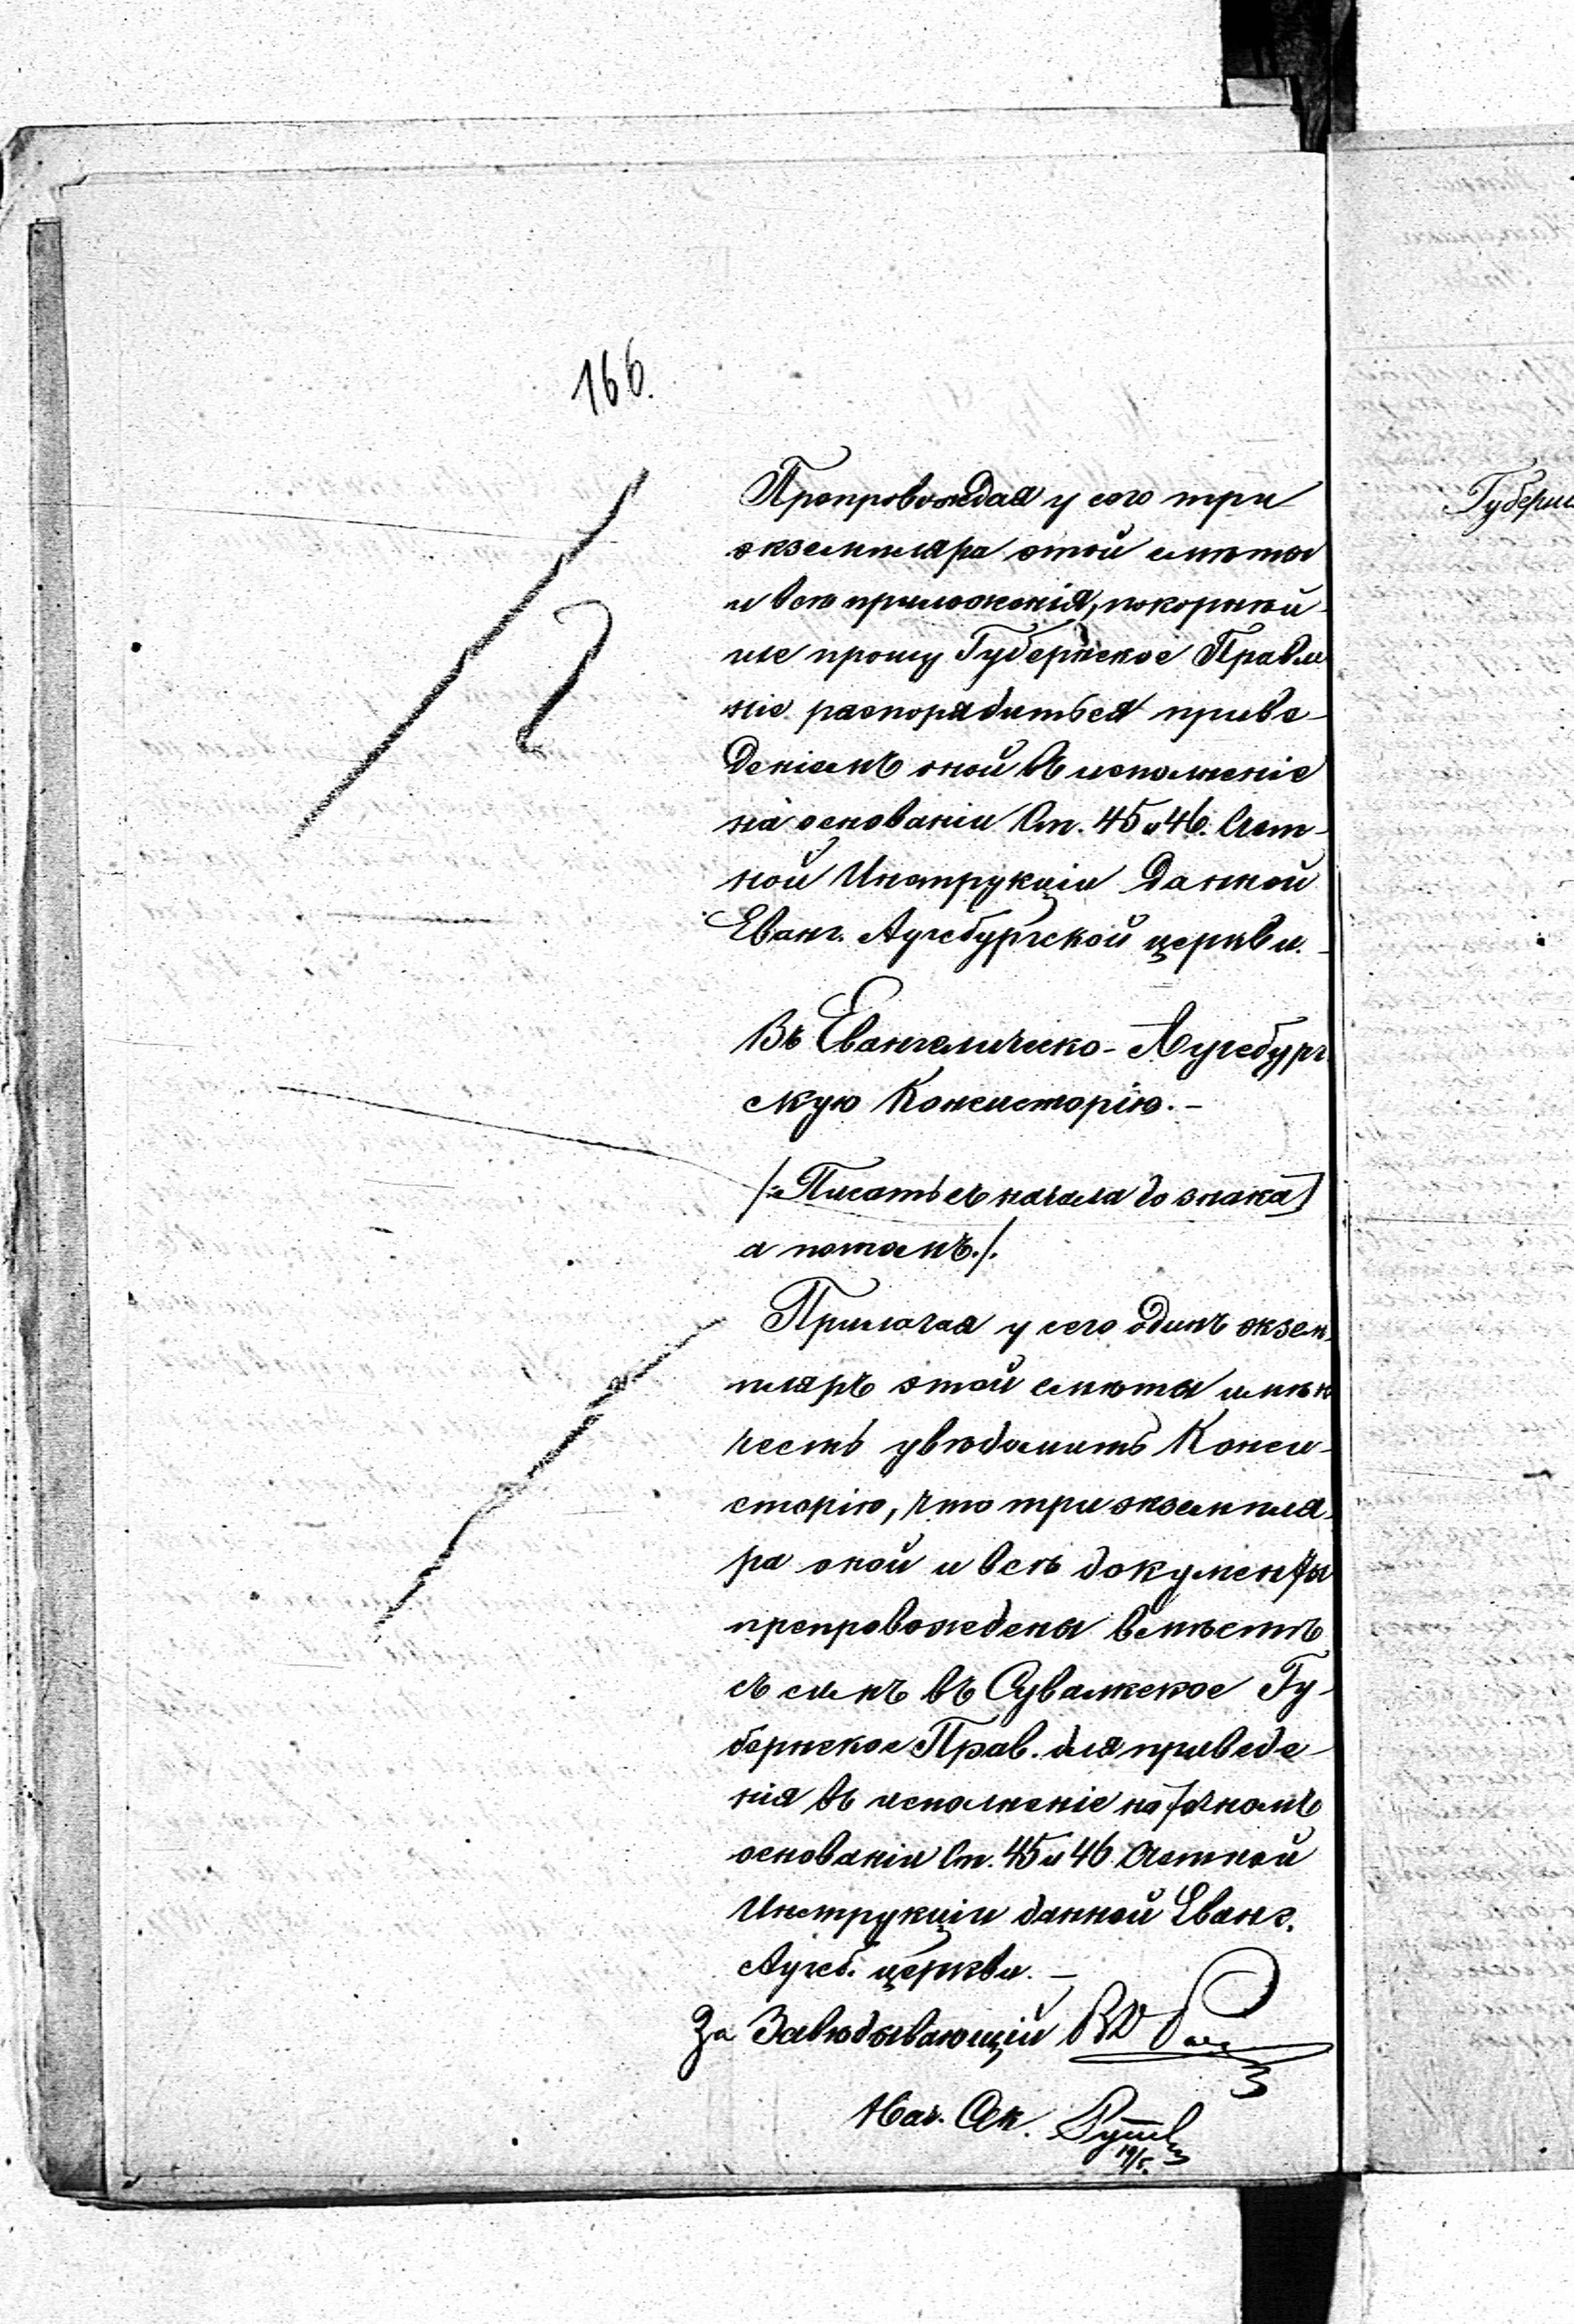 166.
Препровождая у сего три
экземпляра этой смѣты
и всѣ приложенія, покорнѣй-
ше прошу Губернское Правле
ніе распорядиться приве-
деніемъ оной въ исполненіе
на основаніи Ст. 45 и 46. Счет-
ной Инструкціи данной
Еванг. Аугсбургской церкви.-
Въ Евангелическо-Аугсбург
скую Консисторію.-
/:Писать съ начала до знака)
а потомъ:/.
Прилагая у сего одинъ экзем-
пляръ этой смѣты имѣю
честь увѣдомить Конси-
сторію, что три экземпля-
ра оной и всѣ документы
препровождены вмѣстѣ
съ симъ въ Сувалкское Гу-
бернское Прав. для приведе-
нія въ исполненіе на точномъ
основаніи Ст. 45 и 46 Счетной
Инструкціи данной Еванг.
Аугсб. церкви.-
За Завѣдывающій
Нач. Отд.
19/5.
Губерн